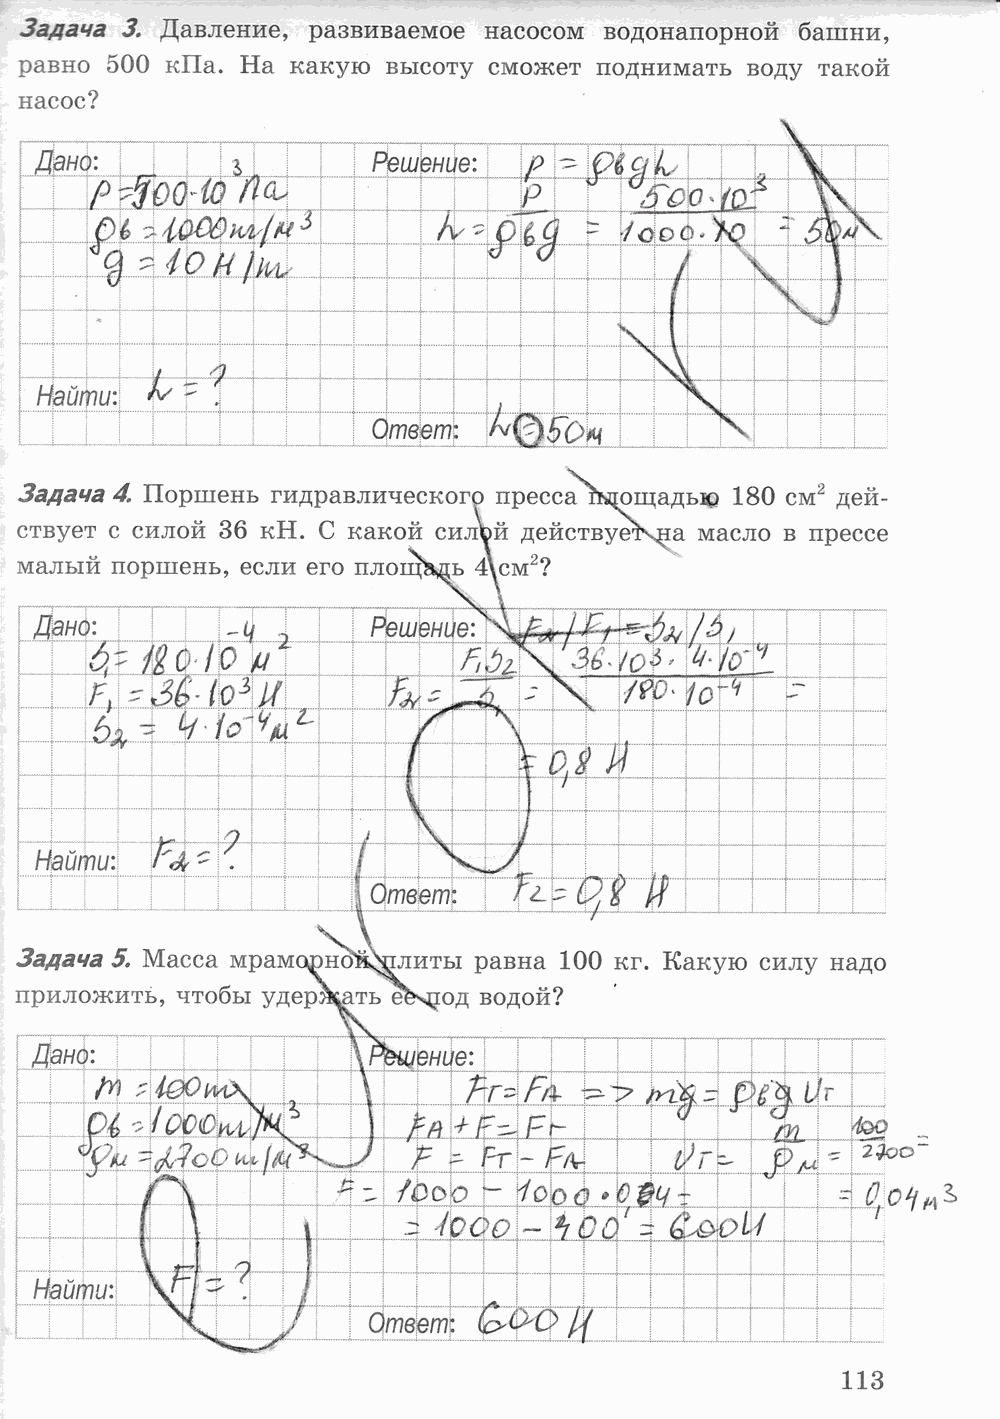 Задача 3. Давление, развиваемое насосом водонапорной башни,
равно 500 кПа. На какую высоту сможет поднимать воду такой
насос?
Дано:
p = 500·10³ Па
ρв = 1000 кг/м³
g = 10 Н/кг
Найти: h = ?
Решение: p = ρвgh
h = p/ρвg = 500·10³/1000·10 = 50 м
Ответ: h = 50 м
Задача 4. Поршень гидравлического пресса площадью 180 см² дей-
ствует с силой 36 кН. С какой силой действует на масло в прессе
малый поршень, если его площадь 4 см²?
Дано:
S₁ = 180·10⁻⁴ м²
F₁ = 36·10³ Н
S₂ = 4·10⁻⁴ м²
Найти: F₂ = ?
Решение: F₂/F₁ = S₂/S₁
F₂ = F₁S₂/S₁ = 36·10³·4·10⁻⁴/180·10⁻⁴ =
= 0,8 Н
Ответ: F₂ = 0,8 Н
Задача 5. Масса мраморной плиты равна 100 кг. Какую силу надо
приложить, чтобы удержать ее под водой?
Дано:
m = 100 кг
ρв = 1000 кг/м³
ρм = 2700 кг/м³
Найти: F = ?
Решение:
Fт = FA => mg = ρвg Vт
FA + F = Fт
F = Fт - FA Vт = m/ρм = 100/2700 =
F = 1000 - 1000·0,04 = = 0,04 м³
= 1000 - 400 = 600 Н
Ответ: 600 Н
113